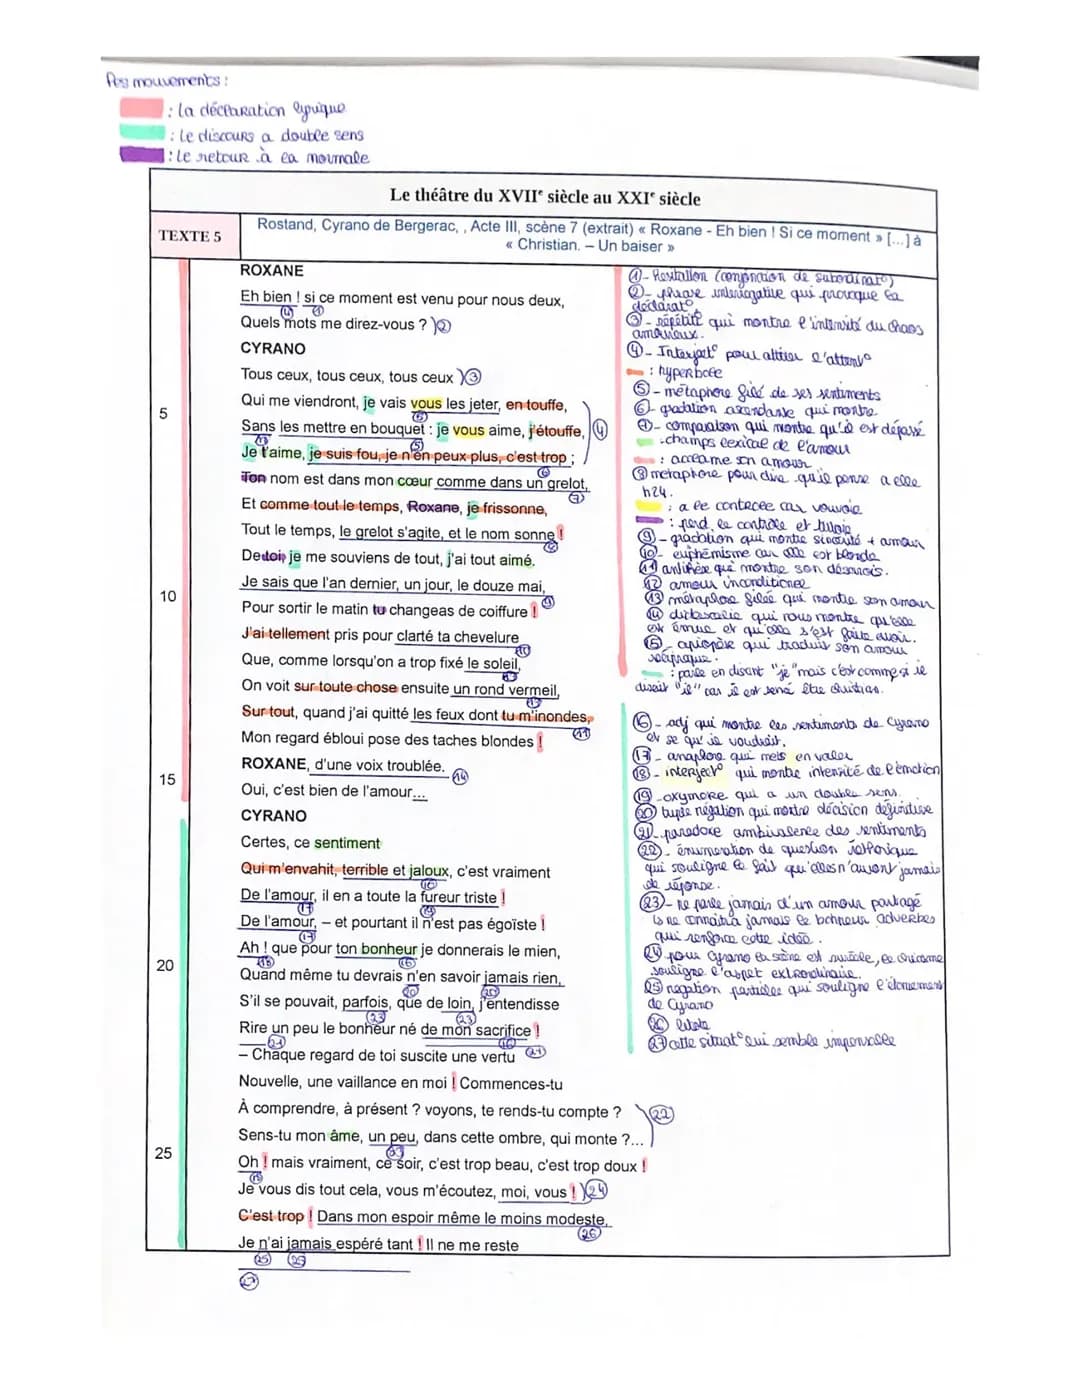 Les mouvements :
: la déclaration lyrique
: Le discours a double sens
: Le retour à la normale
Le théâtre du XVIIe siècle au XXIe siècle
TEXTE 5
Rostand, Cyrano de Bergerac, , Acte III, scène 7 (extrait) « Roxane - Eh bien ! Si ce moment » [...] à
« Christian. – Un baiser »
ROXANE
Eh bien ! si ce moment est venu pour nous deux,
(4) (1)
Quels mots me direz-vous ? (2)
CYRANO
Tous ceux, tous ceux, tous ceux (3)
5
Qui me viendront, je vais vous les jeter, en touffe,
Sans les mettre en bouquet : je vous aime, j'étouffe,
Je t'aime, je suis fou, je n'en peux plus, c'est trop ;
Ton nom est dans mon cœur comme dans un grelot,
Et comme tout le temps, Roxane, je frissonne,
Tout le temps, le grelot s'agite, et le nom sonne !
De toi, je me souviens de tout, j'ai tout aimé.
Je sais que l'an dernier, un jour, le douze mai,
10
Pour sortir le matin tu changeas de coiffure !
J'ai tellement pris pour clarté ta chevelure
Que, comme lorsqu'on a trop fixé le soleil,
On voit sur toute chose ensuite un rond vermeil,
Sur tout, quand j'ai quitté les feux dont tu m'inondes,
Mon regard ébloui pose des taches blondes !
ROXANE, d'une voix troublée.
(14)
15
Oui, c'est bien de l'amour...
CYRANO
Certes, ce sentiment
Qui m'envahit, terrible et jaloux, c'est vraiment
De l'amour, il en a toute la fureur triste !
De l'amour, – et pourtant il n'est pas égoïste !
Ah ! que pour ton bonheur je donnerais le mien,
20
Quand même tu devrais n'en savoir jamais rien,
S'il se pouvait, parfois, que de loin, j'entendisse
Rire un peu le bonheur né de mon sacrifice !
– Chaque regard de toi suscite une vertu
Nouvelle, une vaillance en moi ! Commences-tu
À comprendre, à présent ? voyons, te rends-tu compte ?
(22)
Sens-tu mon âme, un peu, dans cette ombre, qui monte ?...
25
Oh ! mais vraiment, ce soir, c'est trop beau, c'est trop doux !
Je vous dis tout cela, vous m'écoutez, moi, vous ! (24)
C'est trop ! Dans mon espoir même le moins modeste,
(26)
Je n'ai jamais espéré tant ! Il ne me reste
(25) (25)
(27)
(1)- (conjonction de subordinat°)
(2)- phrase interrogative qui provoque la
déclarat°
(3)- répétit° qui montre l'intensité du chaos
amoureux.
(4)- Interject° pour attirer l'attent°
: hyperbole
(5)- métaphore filé de ses sentiments
(6)- gradation ascendante qui montre
(7)- comparaison qui montre qu'il est dépassé
-champs lexical de l'amour
: acclame son amour
(8) métaphore pour dire qu'il pense a elle
h24.
: a le contrôle car vouvoie
: perd le contrôle et tutoie
(9)- gradation qui montre sincérité + amour
(10)- euphémisme car elle est blonde
(11) antithèse qui montre son désarrois.
(12) amour inconditionel
(13) métaphore filée qui montre son amour
(14) didascalie qui nous montre qu'elle
est émue et qu'elle s'est faite avoir.
(15)- aposiopèse qui traduit son amour
réciproque.
: parle en disant "je" mais c'est comme si il
disait "il" car il est sensé être Christian.
(16)- adj qui montre les sentiments de Cyrano
et se qu'il voudrait.
(17)- anaphore qui mets en valeur
(18)- interject° qui montre intensité de l'émotion
(19)-oxymore qui a un double sens.
(20) négation qui montre décision définitive
(21)- paradoxe ambivalence des sentiments
(22)- énumération de question réthorique
qui souligne le fait qu'elles n'auront jamais
de réponse.
(23)- ne parle jamais d'un amour partagé
ne connaîtra jamais le bonheur adverbes
qui renforce cette idée.
(24) pour Cyrano la scène est irréelle, le chiasme
souligne l'aspect extraordinaire.
(25) négation partielle qui souligne l'étonnement
de Cyrano
(26) litote
(27) cette situat° lui semble impensable